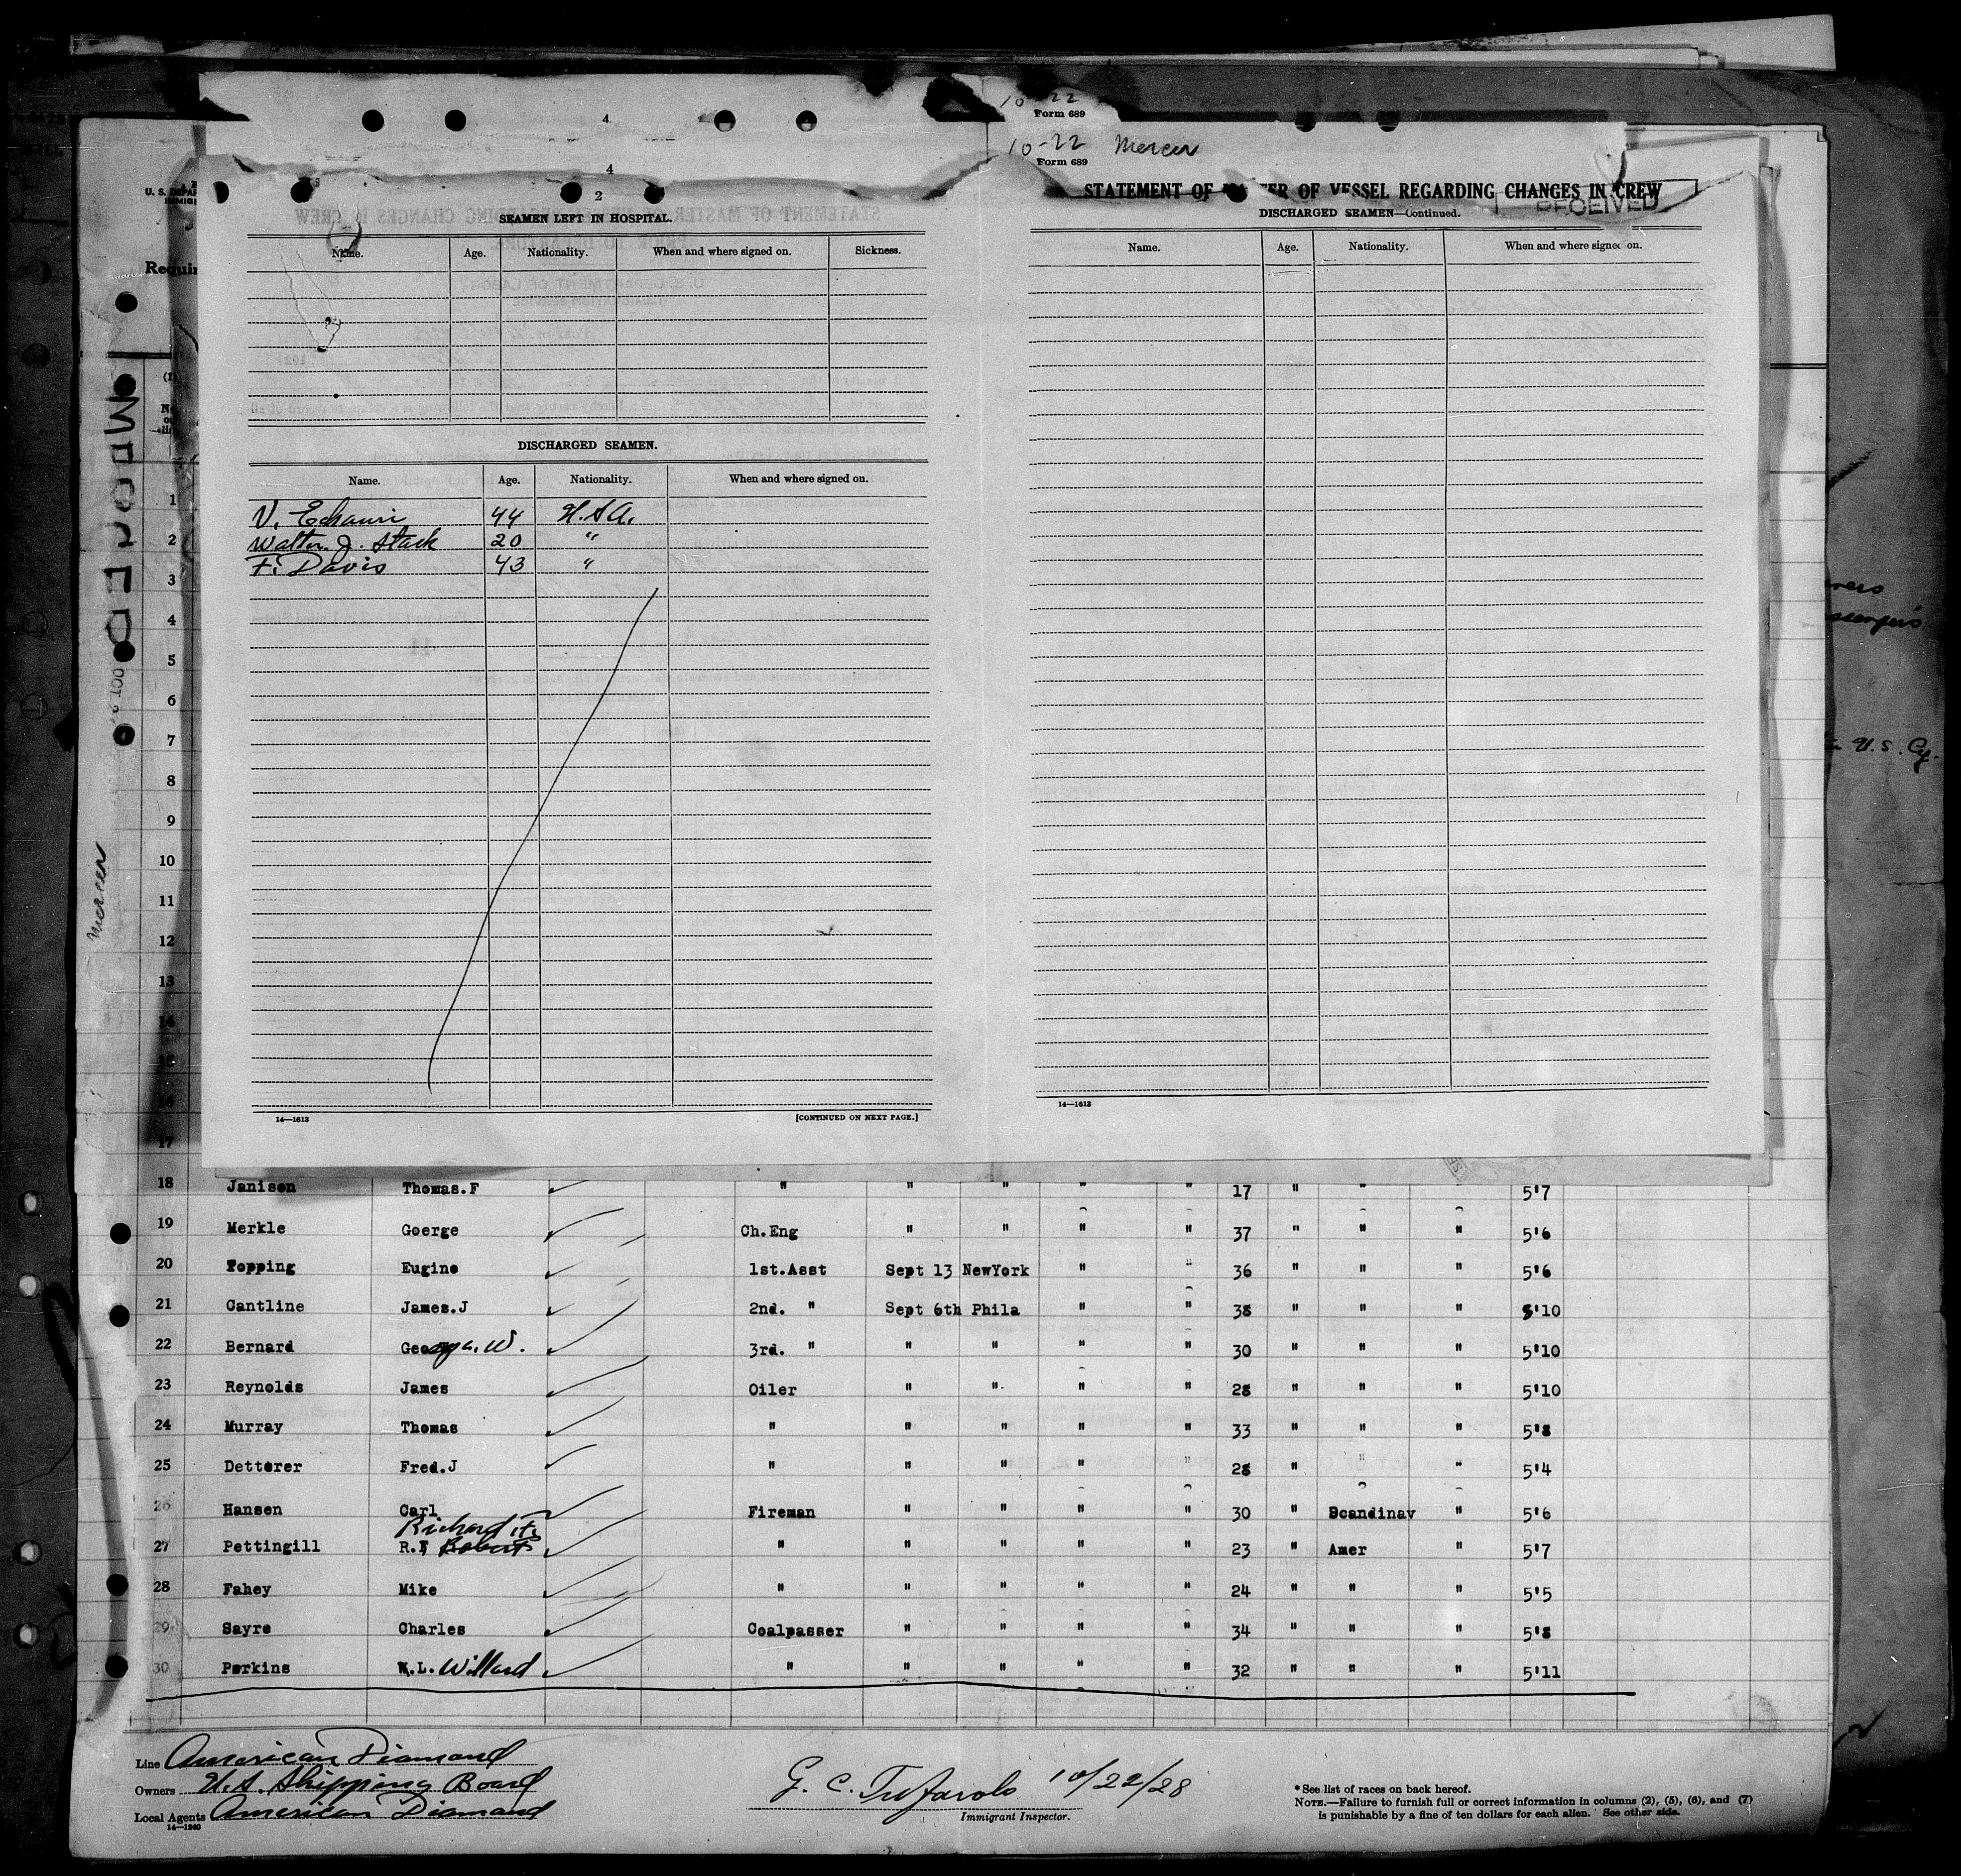 10-22
Form 689
10-22 Mercer
Form 689
4
4
2
STATEMENT OF MASTER OF VESSEL REGARDING CHANGES IN CREW
RECEIVED
SEAMEN LEFT IN HOSPITAL.
Name. Age. Nationality. When and where signed on. Sickness.
DISCHARGED SEAMEN.
Name. Age. Nationality. When and where signed on.
V. Echauri 44 U.S.A.
Walter J. Stack 20 "
F. Davis 43 "
14—1613 [CONTINUED ON NEXT PAGE.]
DISCHARGED SEAMEN—Continued.
Name. Age. Nationality. When and where signed on.
14—1613
Mercer
1
2
3
4
5
6
7
8
9
10
11
12
13
14
15
16
17
18 Janison Thomas.F " " " " " 17 " " " 5'7
19 Merkle Goerge Ch.Eng " " " " 37 " " " 5'6
20 Topping Eugine 1st.Asst Sept 13 NewYork " " 36 " " " 5'6
21 Cantline James.J 2nd. " Sept 6th Phila " " 38 " " " 5'10
22 Bernard George. W. 3rd. " " " " " 30 " " " 5'10
23 Reynolds James Oiler " " " " 28 " " " 5'10
24 Murray Thomas " " " " " 33 " " " 5'8
25 Detterer Fred.J " " " " " 28 " " " 5'4
26 Hansen Carl Fireman " " " " 30 " Scandinav " 5'6
Richard F.
27 Pettingill R.F Robert " " " " " 23 " Amer " 5'7
28 Fahey Mike " " " " " 24 " " " 5'5
29 Sayre Charles Coalpasser " " " " 34 " " " 5'8
30 Perkins W.L. Willard " " " " " 32 " " " 5'11
U.S. Cy.
Line American Diamond
Owners U.S. Shipping Board
Local Agents American Diamond
14—1240
10/22/28
Immigrant Inspector.
* See list of races on back hereof.
NOTE.—Failure to furnish full or correct information in columns (2), (5), (6), and (7)
is punishable by a fine of ten dollars for each alien. See other side.